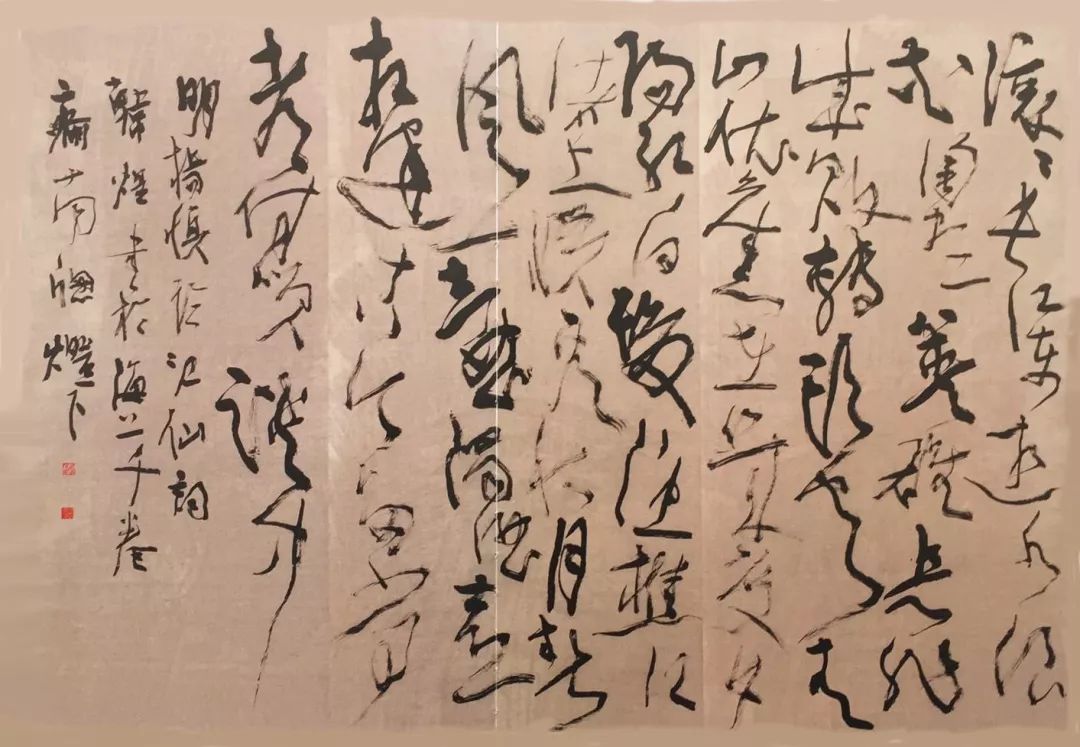 滚〻长江东逝水浪
花淘尽英雄是非
成败转头空青
山依旧在几度夕
阳红白发渔樵江
渚上惯看秋月春
风一壶浊酒喜
相逢古今多少事
都付笑谈中
明楊慎临江仙詞
韓煜书於海上千卷
齋南牕燈下